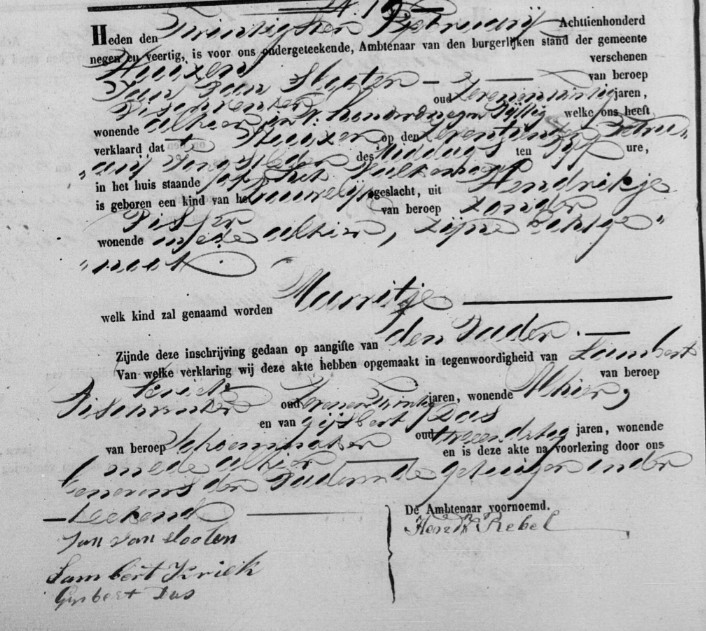 Heden den Twintigsten Februarij Achttienhonderd
negen en veertig, is voor ons ondergeteekende, Ambtenaar van den burgerlijken stand der gemeente
Huizen verschenen
Jan van Slooten van beroep
Visscher oud zevenentwintig jaren,
wonende alhier welke ons heeft
verklaard dat te Huizen op den Februarij
des Middags ten Vijf ure,
in het huis staande
is geboren een kind van het vrouwelijk geslacht, uit Hendrikje
Visser van beroep zonder
wonende mede alhier, zijne echtge-
noot
welk kind zal genaamd worden Marritje
Zijnde deze inschrijving gedaan op aangifte van den Vader.
Van welke verklaring wij deze akte hebben opgemaakt in tegenwoordigheid van Lambert
Kriek van beroep
oud jaren, wonende Alhier,
en van Gijsbert Das
van beroep Schoenmaker oud jaren, wonende
mede alhier en is deze akte na voorlezing door ons
benevens den Vader en de getuigen onder-
teekend
De Ambtenaar voornoemd.
Jan van slooten
Hend Rebel
Lambert Kriek
Gysbert Das